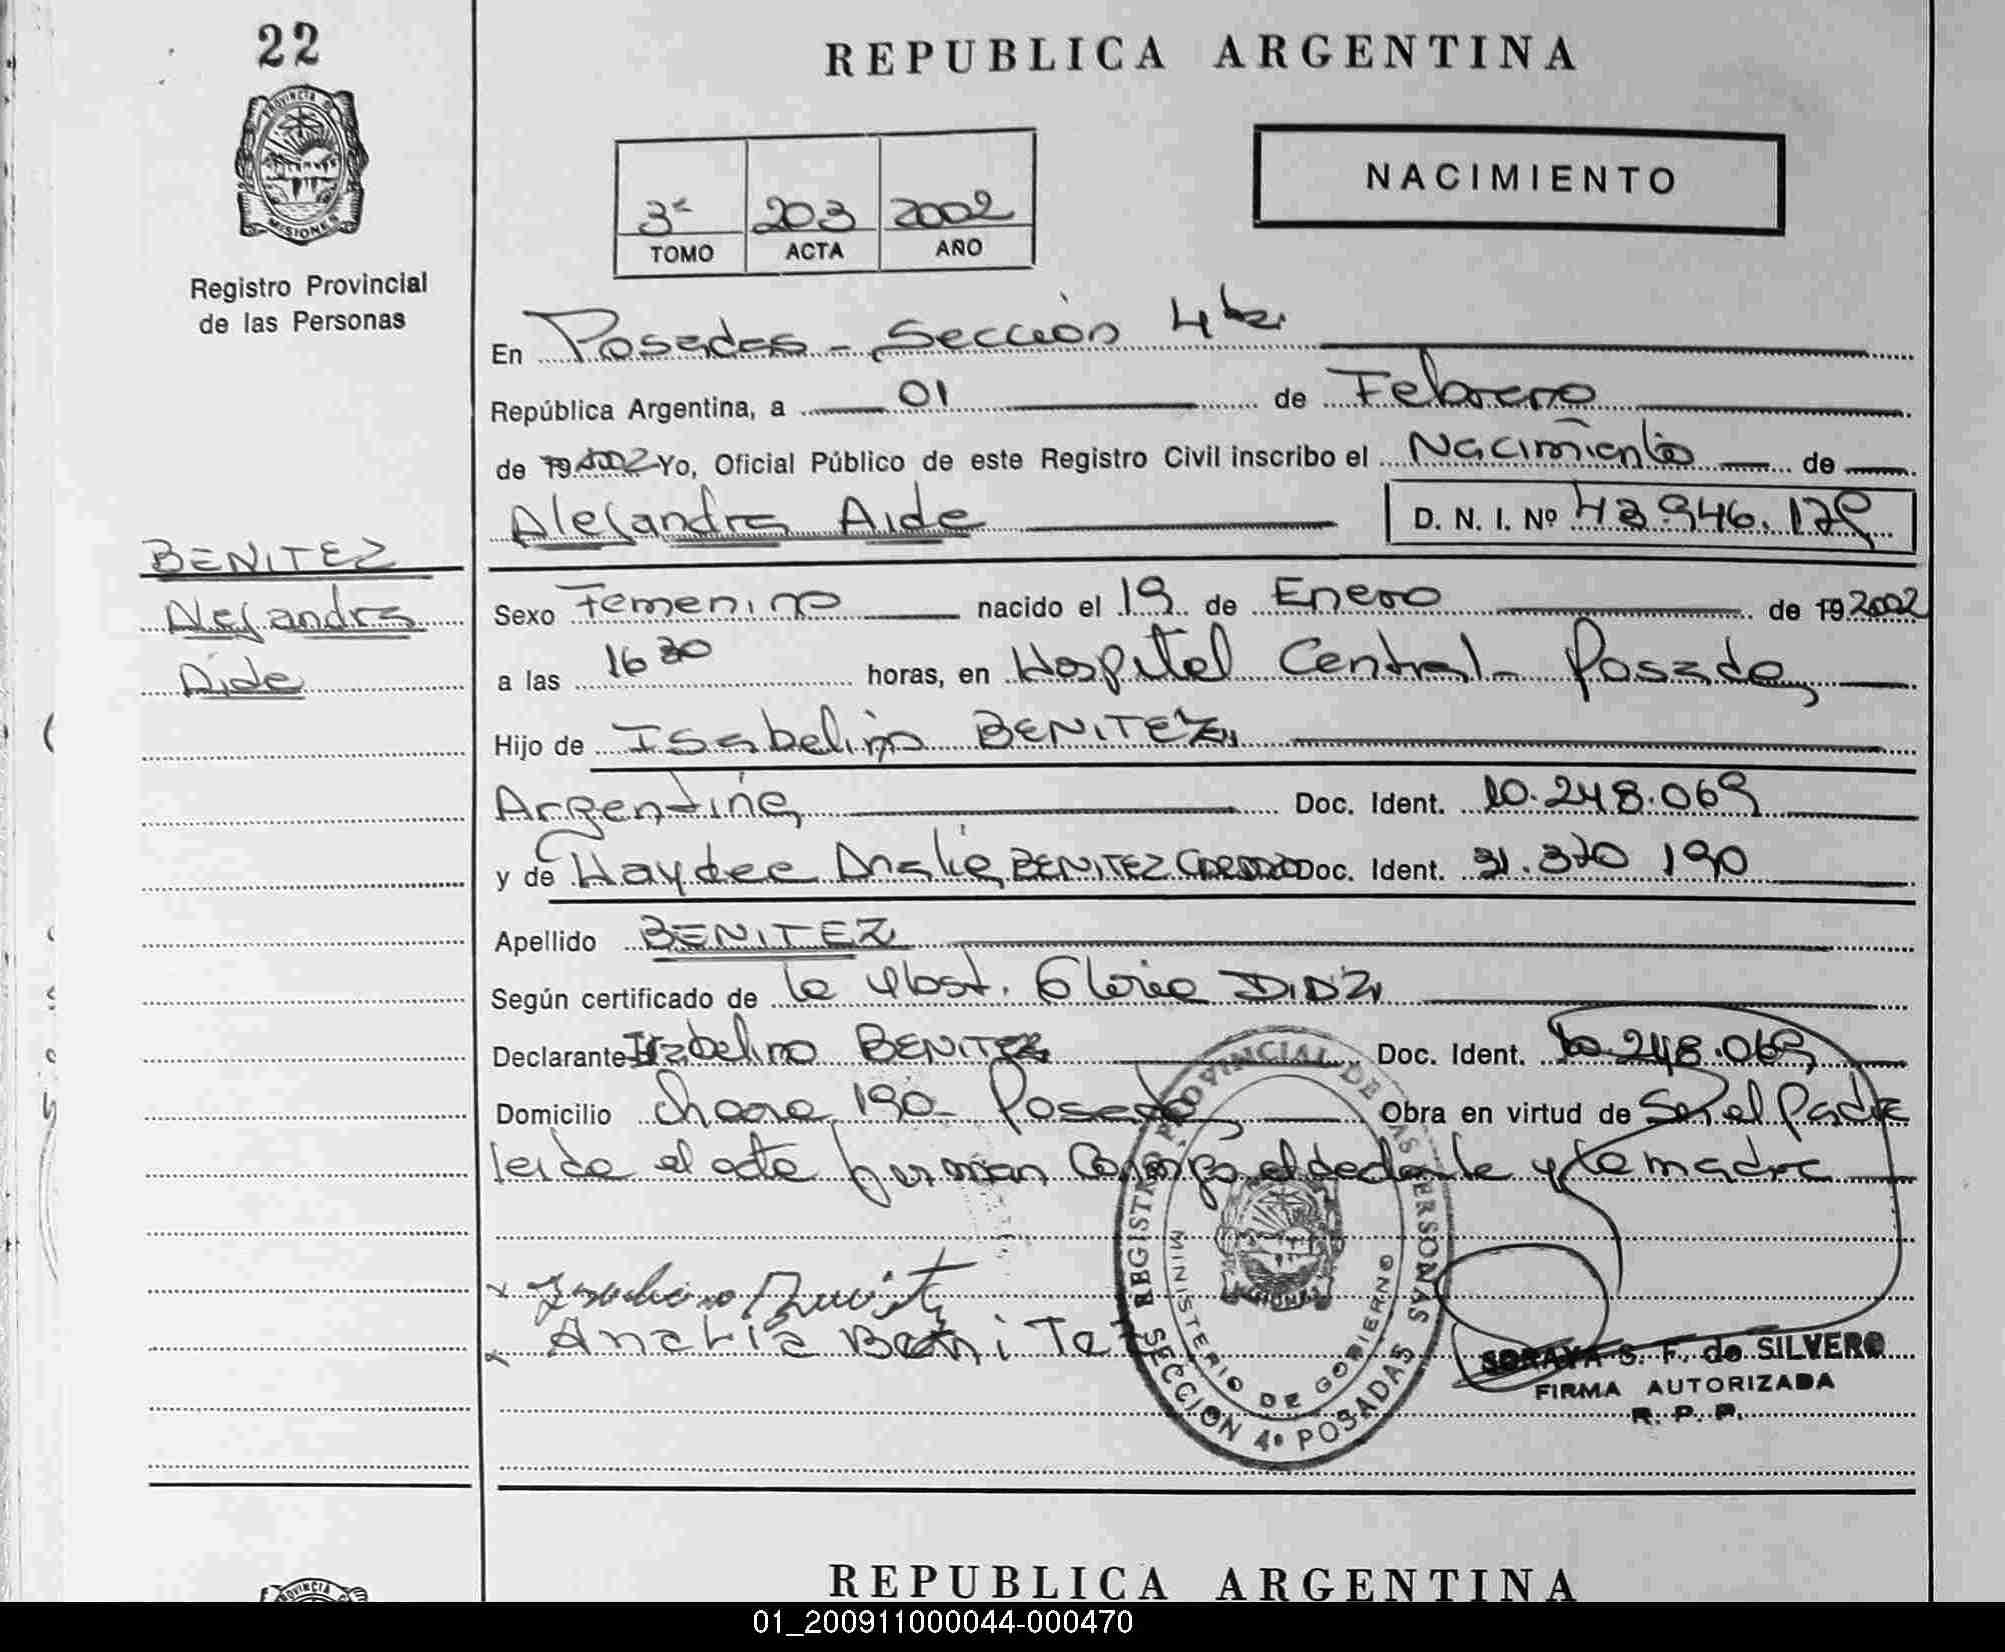 22
REPUBLICA ARGENTINA
PROVINCIA D
MISIONES
Registro Provincial
de las Personas
NACIMIENTO
3ª 203 2002
TOMO ACTA AÑO
En Posadas - Sección 4ta
República Argentina, a 01 de Febrero
de 19 2002 Yo, Oficial Público de este Registro Civil inscribo el Nacimiento de
Alejandra Aide D. N. I. Nº 43.946.179
BENITEZ
Alejandra
Aide
Sexo Femenino nacido el 19 de Enero de 19 2002
a las 16 30 horas, en Hospital Central - Posadas
Hijo de Isabelino BENITEZ
Argentina Doc. Ident. 10.248.069
y de Haydee Analia BENITEZ Doc. Ident. 31.370 190
Apellido BENITEZ
Según certificado de la Obst. Gloria DIAZ
Declarante Isabelino BENITEZ Doc. Ident. 10.248.069
Domicilio chacra 190 - Posadas Obra en virtud de Ser el Padre
leida el acta firman conmigo el declarante y la madre
Analia Benitez
REGISTRO PROVINCIAL DE LAS PERSONAS
MINISTERIO DE GOBIERNO
SECCION 4º POSADAS
SORAYA S. F. de SILVERO
FIRMA AUTORIZADA
R. P. P.
REPUBLICA ARGENTINA
01_200911000044-000470